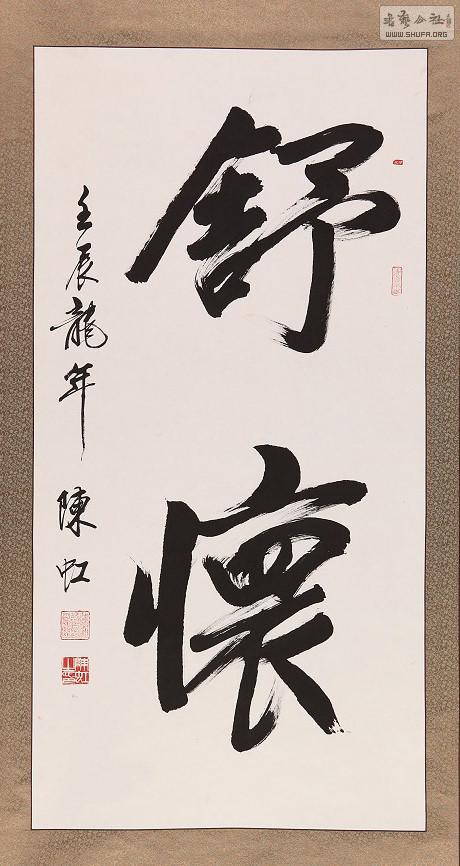 舒懷
壬辰龍年 陳虹
書藝公社
WWW.SHUFA.ORG